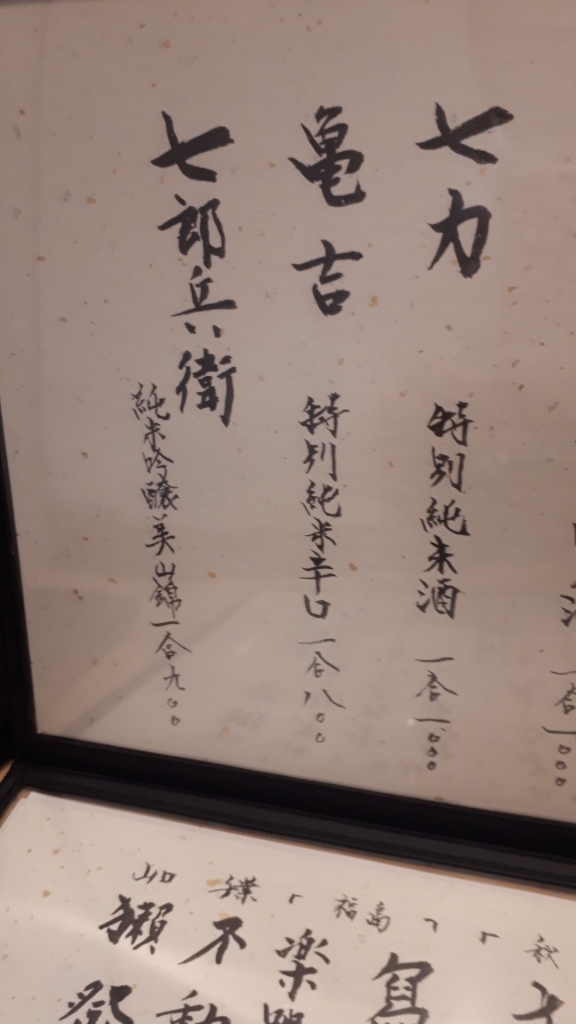 七力
特別純米酒
一合一〇〇〇
亀吉
特別純米辛口
一合八〇〇
七郎兵衛
純米吟醸美山錦一合九〇〇
秋
福島
楽
不動
山口
獺祭